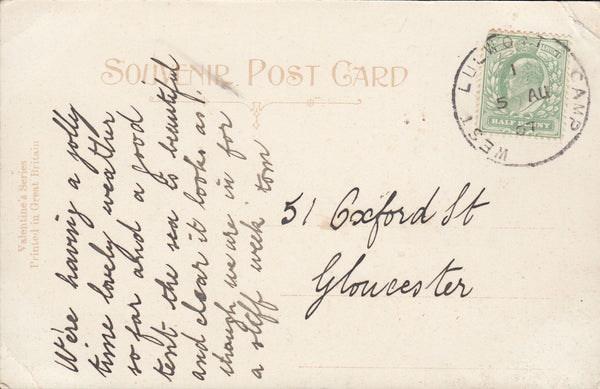 SOUVENIR POST CARD
Valentine's Series
Printed in Great Britain
We're having a jolly
time lovely weather
so far and a good
tent the sea is beautiful
and clear it looks as
though we are in for
a stiff week tom
51 Oxford St
Gloucester
WEST LULWORTH CAMP
1
5 AU
HALF PENNY